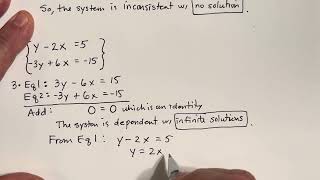 So, the system is inconsistent w/ no solution.
y - 2x = 5
-3y + 6x = -15
3·Eq1: 3y - 6x = 15
Eq2: -3y + 6x = -15
Add: 0 = 0 which is an identity
The system is dependent w/ infinite solutions.
From Eq1: y - 2x = 5
y = 2x